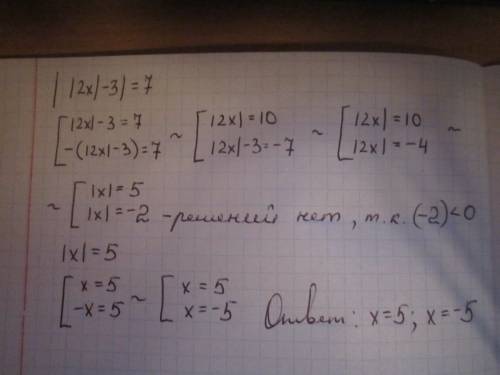 | |2x|-3| = 7
[ |2x|-3 = 7 ~ [ |2x| = 10 ~ [ |2x| = 10 ~
-(|2x|-3) = 7 |2x|-3 = -7 |2x| = -4
~ [ |x| = 5
|x| = -2 - решений нет, т.к. (-2)<0
|x| = 5
[ x = 5 ~ [ x = 5
-x = 5 x = -5 Ответ: x=5; x=-5